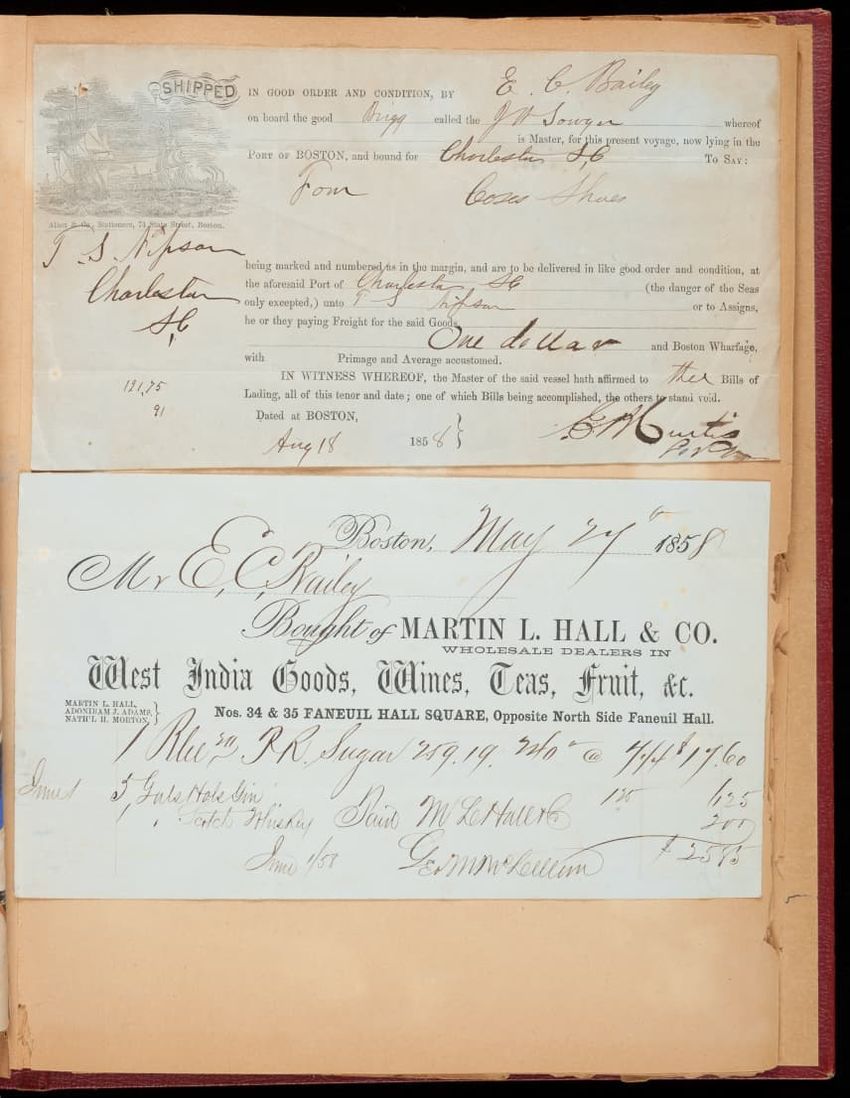 SHIPPED IN GOOD ORDER AND CONDITION, BY E. C. Bailey
on board the good Brigg called the J W Sawyer whereof
is Master, for this present voyage, now lying in the
PORT OF BOSTON, and bound for Charleston S,C To SAY:
Four Cases Shoes
Stationers, 71 State Street, Boston.
T S
Charleston
S,C
121,75
91
being marked and numbered as in the margin, and are to be delivered in like good order and condition, at
the aforesaid Port of Charleston SC (the danger of the Seas
only excepted,) unto T S or to Assigns,
he or they paying Freight for the said Goods,
One dollar and Boston Wharfage,
with Primage and Average accustomed.
IN WITNESS WHEREOF, the Master of the said vessel hath affirmed to Bills of
Lading, all of this tenor and date; one of which Bills being accomplished, the others to stand void.
Dated at BOSTON,
Aug 18 1858 }
Curtis
Boston, May 27th 1858
Mr E, C, Bailey
Bought of MARTIN L. HALL & CO.
WHOLESALE DEALERS IN
West India Goods, Wines, Teas, Fruit, &c.
MARTIN L. HALL,
ADONIRAM J. ADAMS,
NATH'L H. MORTON, }
Nos. 34 & 35 FANEUIL HALL SQUARE, Opposite North Side Faneuil Hall.
1 P.R. Sugar 259.19. 240 @ $17.60
June 1 5 Gals Hols Gin 125 625
" Scotch Whiskey 200
Paid M L Hall & Co
June 1/58 $ 2585